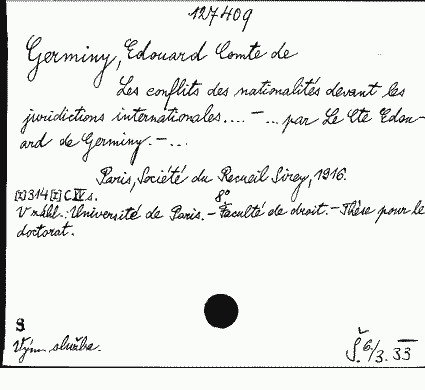 127409
Germiny, Edouard Comte de
Les conflits des nationalités devant les
juridictions internationales.... — ... par Le Cte Edou-
ard de Germiny. — ...
Paris, Société du Recueil Sirey, 1916.
[I] 314 [I] CIV s. 8°
V náhl.: Université de Paris. — Faculté de droit. — Thèse pour le
doctorat.
S
Vým. služba.
Š. 6/3. 33